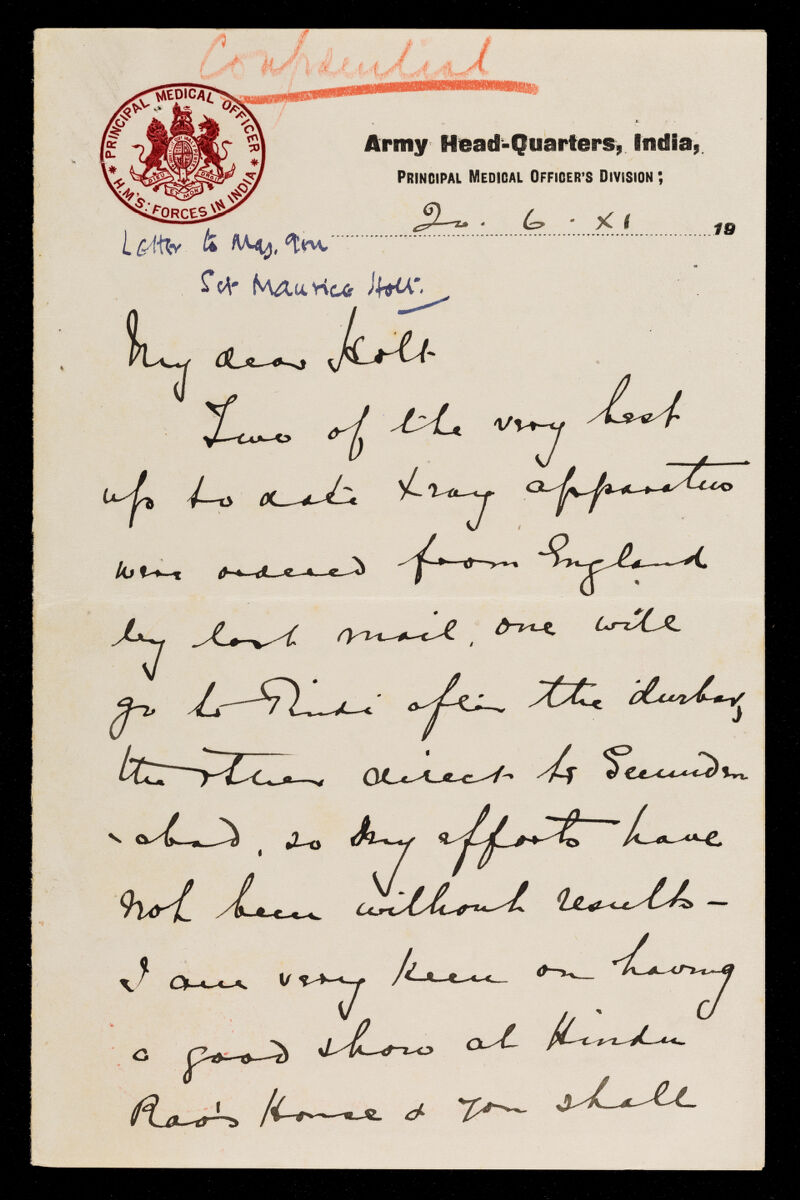 Confidential
PRINCIPAL MEDICAL OFFICER
H.M'S: FORCES IN INDIA
DIEU ET MON DROIT
Army Head-Quarters, India,
PRINCIPAL MEDICAL OFFICER'S DIVISION;
20. 6. XI 19
Letter to Maj. Gen
Sir Maurice Holt.
My dear Holt
Two of the very best
up to date Xray apparatus
were ordered from England
by last mail, one will
go to Pindi after the durbar,
the other direct to Secunder
-abad, so my efforts have
not been without results –
I am very keen on having
a good show at Hindu
Rao's House & you shall